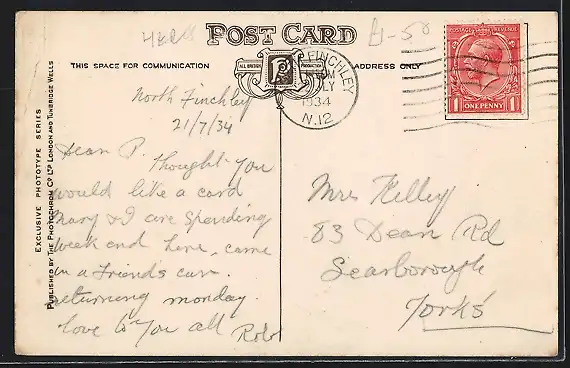 POST CARD
£1-50
THIS SPACE FOR COMMUNICATION
ALL BRITISH PRODUCTION
ADDRESS ONLY
FINCHLEY
LY
1934
N.12
POSTAGE REVENUE
1 ONE PENNY 1
EXCLUSIVE PHOTOTYPE SERIES
PUBLISHED BY THE PHOTOCHROM CO LTD LONDON AND TUNBRIDGE WELLS
North Finchley
21/7/34
Dear P. thought you
would like a card
Mary & I are spending
week end here. came
in a friends car.
returning monday.
love to you all Rob
Mrs Kelley
83 Dean Rd
Scarborough
Yorks